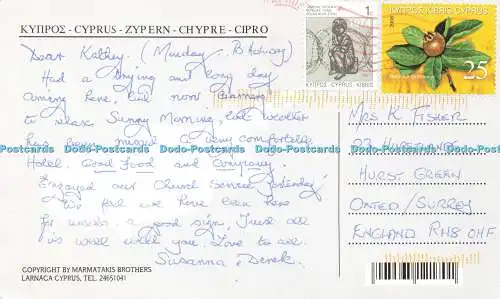 ΚΥΠΡΟΣ - CYPRUS - ZYPERN - CHYPRE - CIPRO
Dear Kathy. (Monday, B
Had a tiring and long day
here, but now
to relax. Sunny Morning, but weather
has been mixed. a very comfortable
Hotel. Good Food and Company.
Enjoyed our Church Service Yesterday
feel we have been here
for weeks, a good sign, Trust all
is well with you. Love to all.
Susanna & Derek.
COPYRIGHT BY MARMATAKIS BROTHERS
LARNACA CYPRUS, TEL. 24651041
1
ΚΥΠΡΟΣ CYPRUS KIBRIS
ΚΥΠΡΟΣ KIBRIS CYPRUS
25
MRS K FISHER
HURST GREEN
OXTED / SURREY
ENGLAND RH8 0HF.
Dodo-Postcards Dodo-Postcards Dodo-Postcards Dodo-Postcards Dodo-Postcards